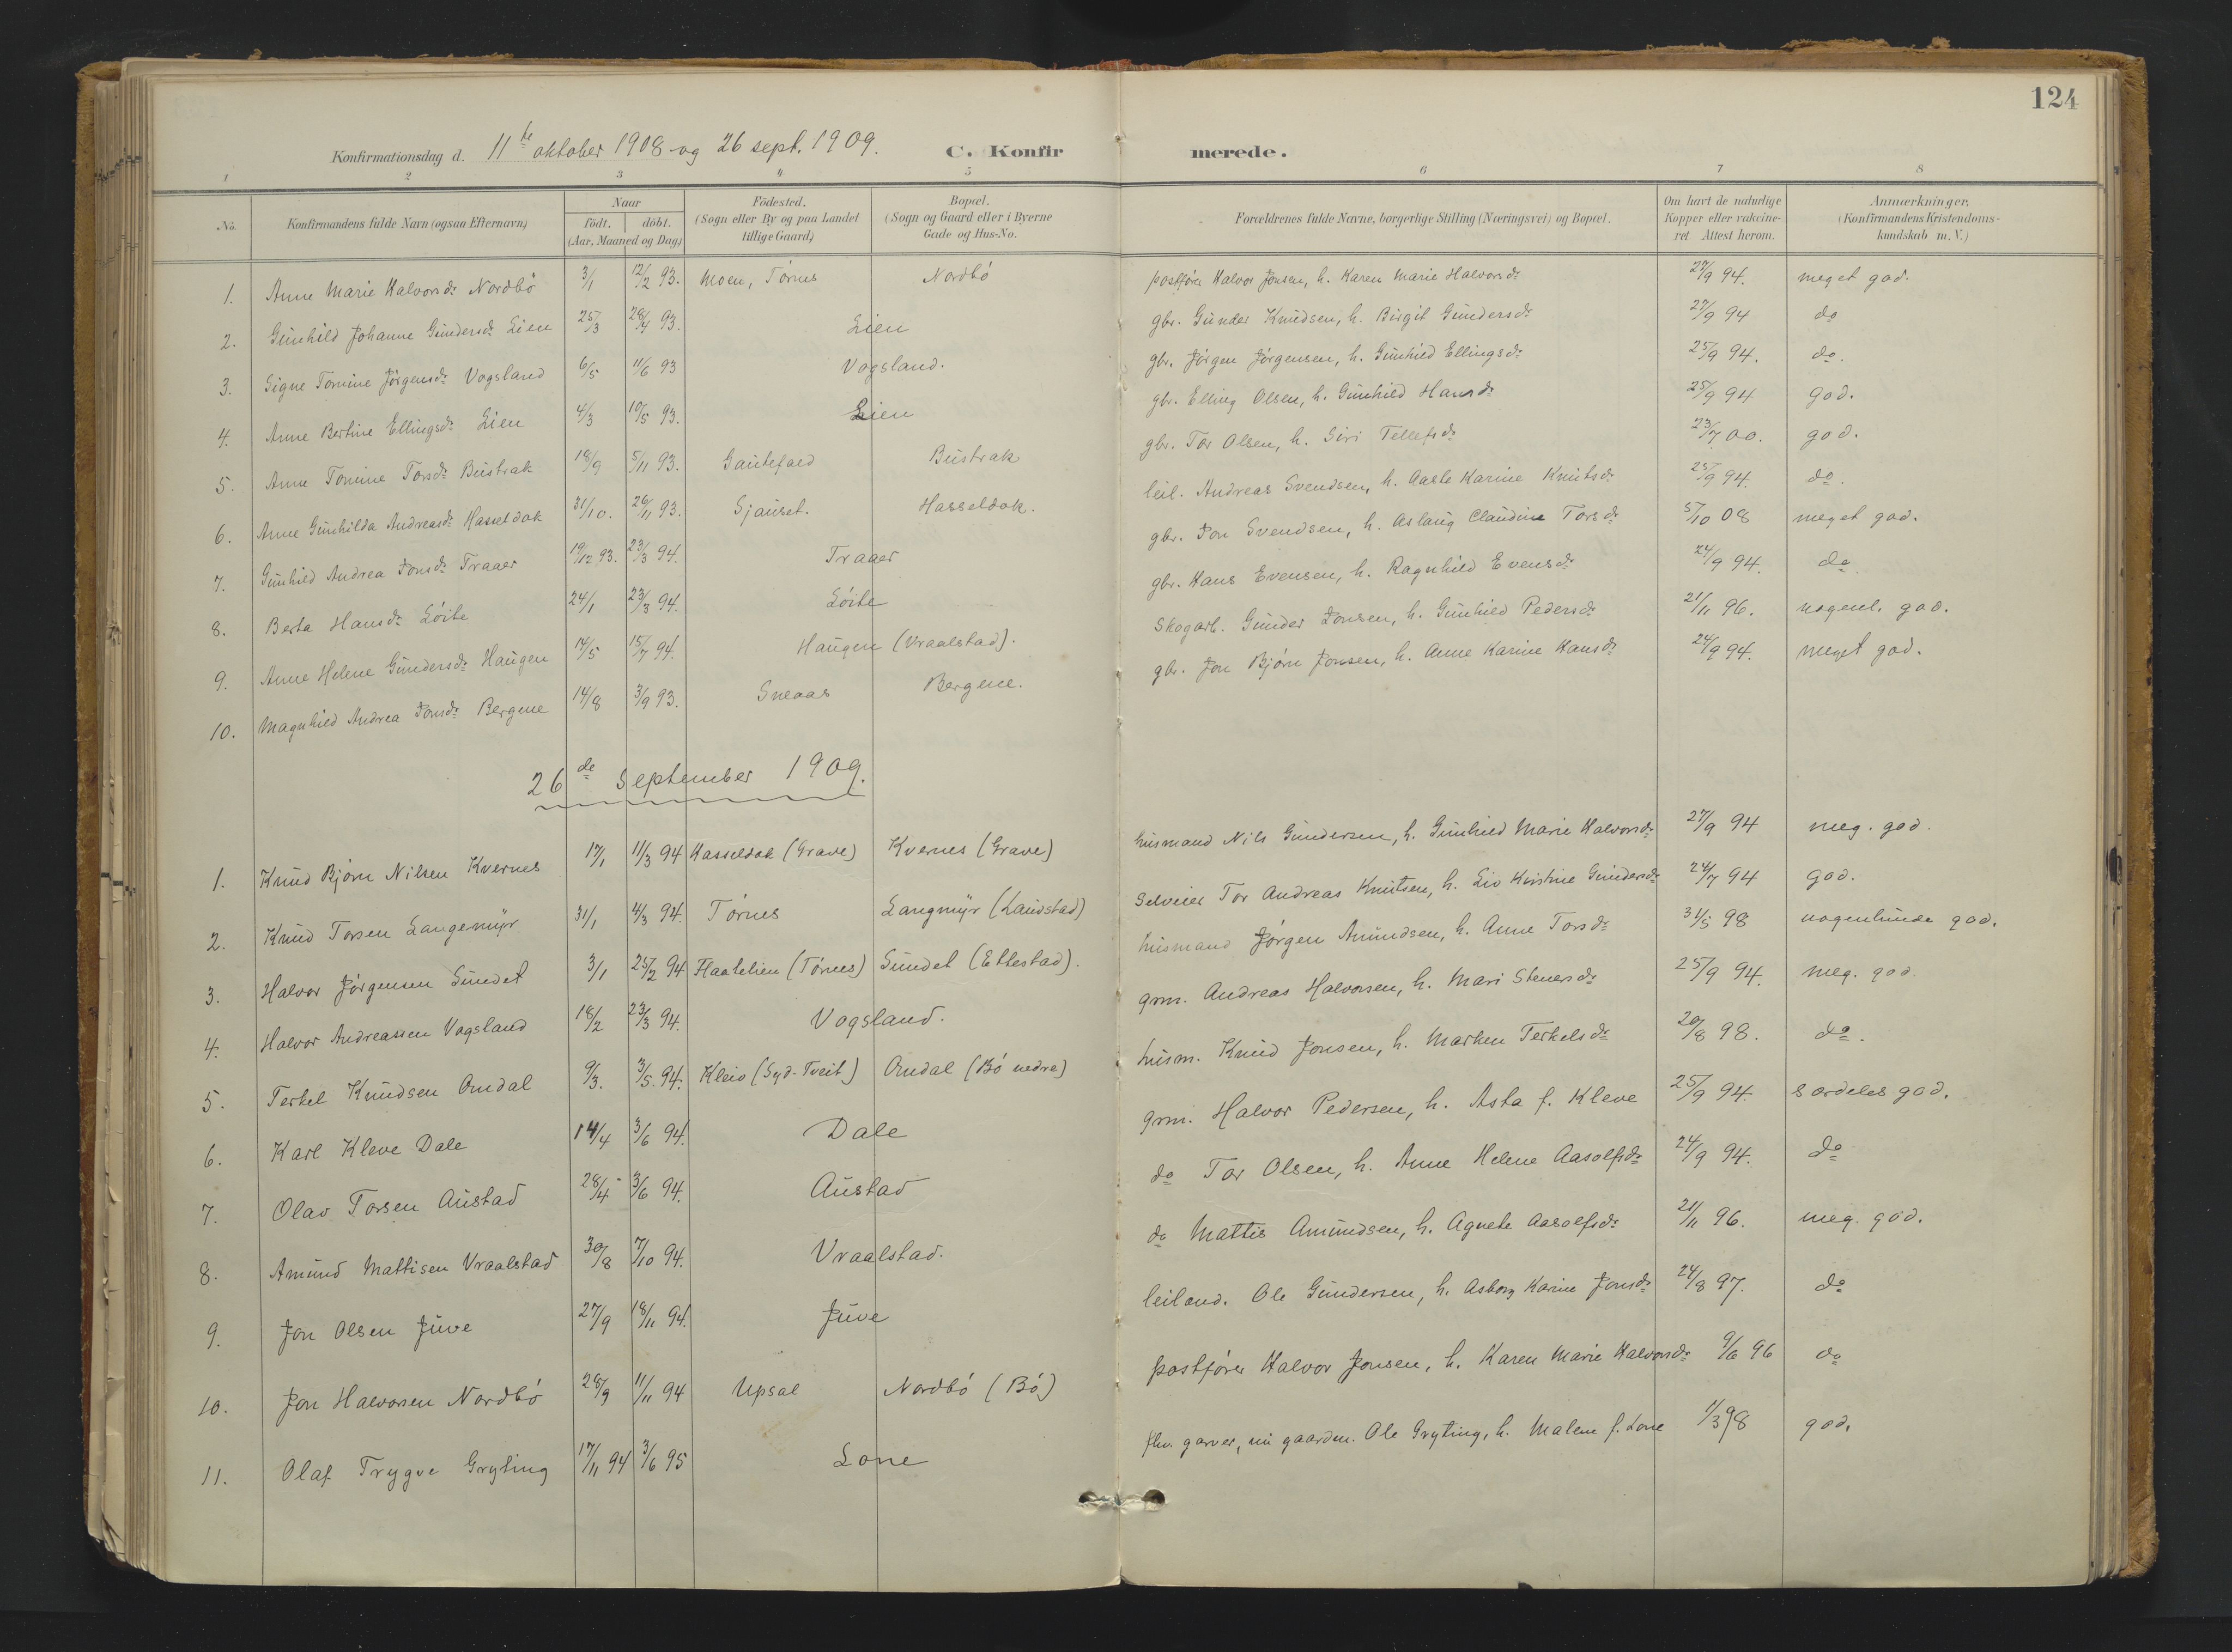 124
Konfirmationsdag d. 11te oktober 1908 og 26 sept. 1909. C. Konfirmerede.
1 2 3 4 5 6 7 8
No. Konfirmandens fulde Navn (ogsaa Efternavn) Naar födt. döbt. (Aar, Maaned og Dag) Födested. (Sogn eller By og paa Landet tillige Gaard) Bopæl. (Sogn og Gaard eller i Byerne Gade og Hus-No. Forældrenes fulde Navne, borgerlige Stilling (Næringsvei) og Bopæl. Om havt de naturlige Kopper eller vakcineret. Attest herom. Anmærkninger. (Konfirmandens Kristendomskundskab m. V.)
1. Anne Marie Halvorsdr. Nordbö 3/1 12/2 93. Moen, Törnes Nordbó postförer Halvor Jonsen, h. Karen Marie Halvorsdr. 27/9 94. meget god.
2. Gunhild Johanne Gundersdr. Lien 25/3 28/4 93. Lien gbr. Gunder Knudsen, h. Birgit Gundersdr. 27/9 94 do
3. Signe Tomine Jörgensdr. Vogsland 6/5 11/6 93 Vogsland. gbr. Jörgen Jörgensen, h. Gunhild Ellingsdr. 25/9 94. do.
4. Anne Bertine Ellingsdr. Lien 4/3 10/5 93. Lien gbr. Elling Olsen, h. Gunhild Hansdr. 25/9 94 god.
5. Anne Tomine Torsdr. Bustrak 18/9 5/11 93. Gautefald Bustrak gbr. Tor Olsen, h. Siri Tellefsdr. 23/7 00. god.
6. Anne Gunhilda Andreasdr. Hasseldok 31/10. 26/11 93. Sjauset. Hasseldok. leil. Andreas Svendsen, h. Aaste Karine Knutsdr. 25/9 94. do.
7. Gunhild Andrea Jonsdr. Traaer 19/12 93. 23/3 94. Traaer gbr. Jon Svendsen, h. Aslaug Claudine Torsdr. 5/10 08 meget god.
8. Berta Hansdr. Löite 24/1 23/3 94. Löite gbr. Hans Evensen, h. Ragnhild Evensdr. 24/9 94. do.
9. Anne Helene Gundersdr. Haugen 14/5 15/7 94. Haugen (Vraalstad). Skogarb. Gunder Jonsen, h. Gunhild Pedersdr. 21/11 96. nogenl. god.
10. Magnhild Andrea Jonsdr. Bergene 14/8 3/9 93. Sneaas Bergene. gbr. Jon Björn Jonsen, h. Anne Karine Hansdr. 24/9 94. meget god.
26de September 1909.
1. Knud Björn Nilsen Kvernes 17/1 11/3 94 Hasseldok (Grave) Kvernes (Grave) husmand Nils Gundersen, h. Gunhild Marie Halvorsdr. 27/9 94 meg. god.
2. Knud Torsen Langemyr 31/1 4/3 94. Törnes Langmyr (Landstad) Selveier Tor Andreas Knutsen, h. Liv Kirstine Gundersdr. 24/7 94 god.
3. Halvor Jörgensen Sundet 3/1 25/2 94 Flaatelien (Törnes) Sundet (Ettestad). husmand Jörgen Amundsen, h. Anne Torsdr. 31/5 98 nogenlunde god.
4. Halvor Andreassen Vogsland 18/2 23/3 94. Vogsland. grm. Andreas Halvorsen, h. Mari Stenersdr. 25/9 94. meg. god.
5. Terkel Knudsen Omdal 9/3. 3/5. 94. Kleiv (Syd-Tveit) Omdal (Bö nedre) husm. Knud Jonsen, h. Marken Terkelsdr. 20/8 98. do.
6. Karl Kleve Dale 14/4 3/6 94. Dale grm. Halvor Pedersen, h. Asta f. Kleve 25/9 94. særdeles god.
7. Olav Torsen Austad 28/4 3/6 94. Austad do Tor Olsen, h. Anne Helene Aasolfsdr. 24/9 94. do
8. Amund Mattisen Vraalstad 30/8 7/10 94. Vraalstad. do Mattis Amundsen, h. Agnete Aasolfsdr. 21/11 96. meg. god.
9. Jon Olsen Juve 27/9 18/11 94. Juve leiland. Ole Gundersen, h. Asborg Karine Jonsdr. 24/8 97. do
10. Jon Halvorsen Nordbö 28/9 11/11 94 Upsal Nordbö (Bö) postförer Halvor Jonsen, h. Karen Marie Halvorsdr. 9/6 96 do
11. Olaf Trygve Gryting 17/11 94 3/6 95 Lone fhv. garver, nu gaardm. Ole Gryting, h. Malene f. Lone 1/3 98 god.